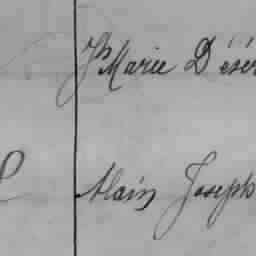 Jn Marie Désér
Alain Joseph